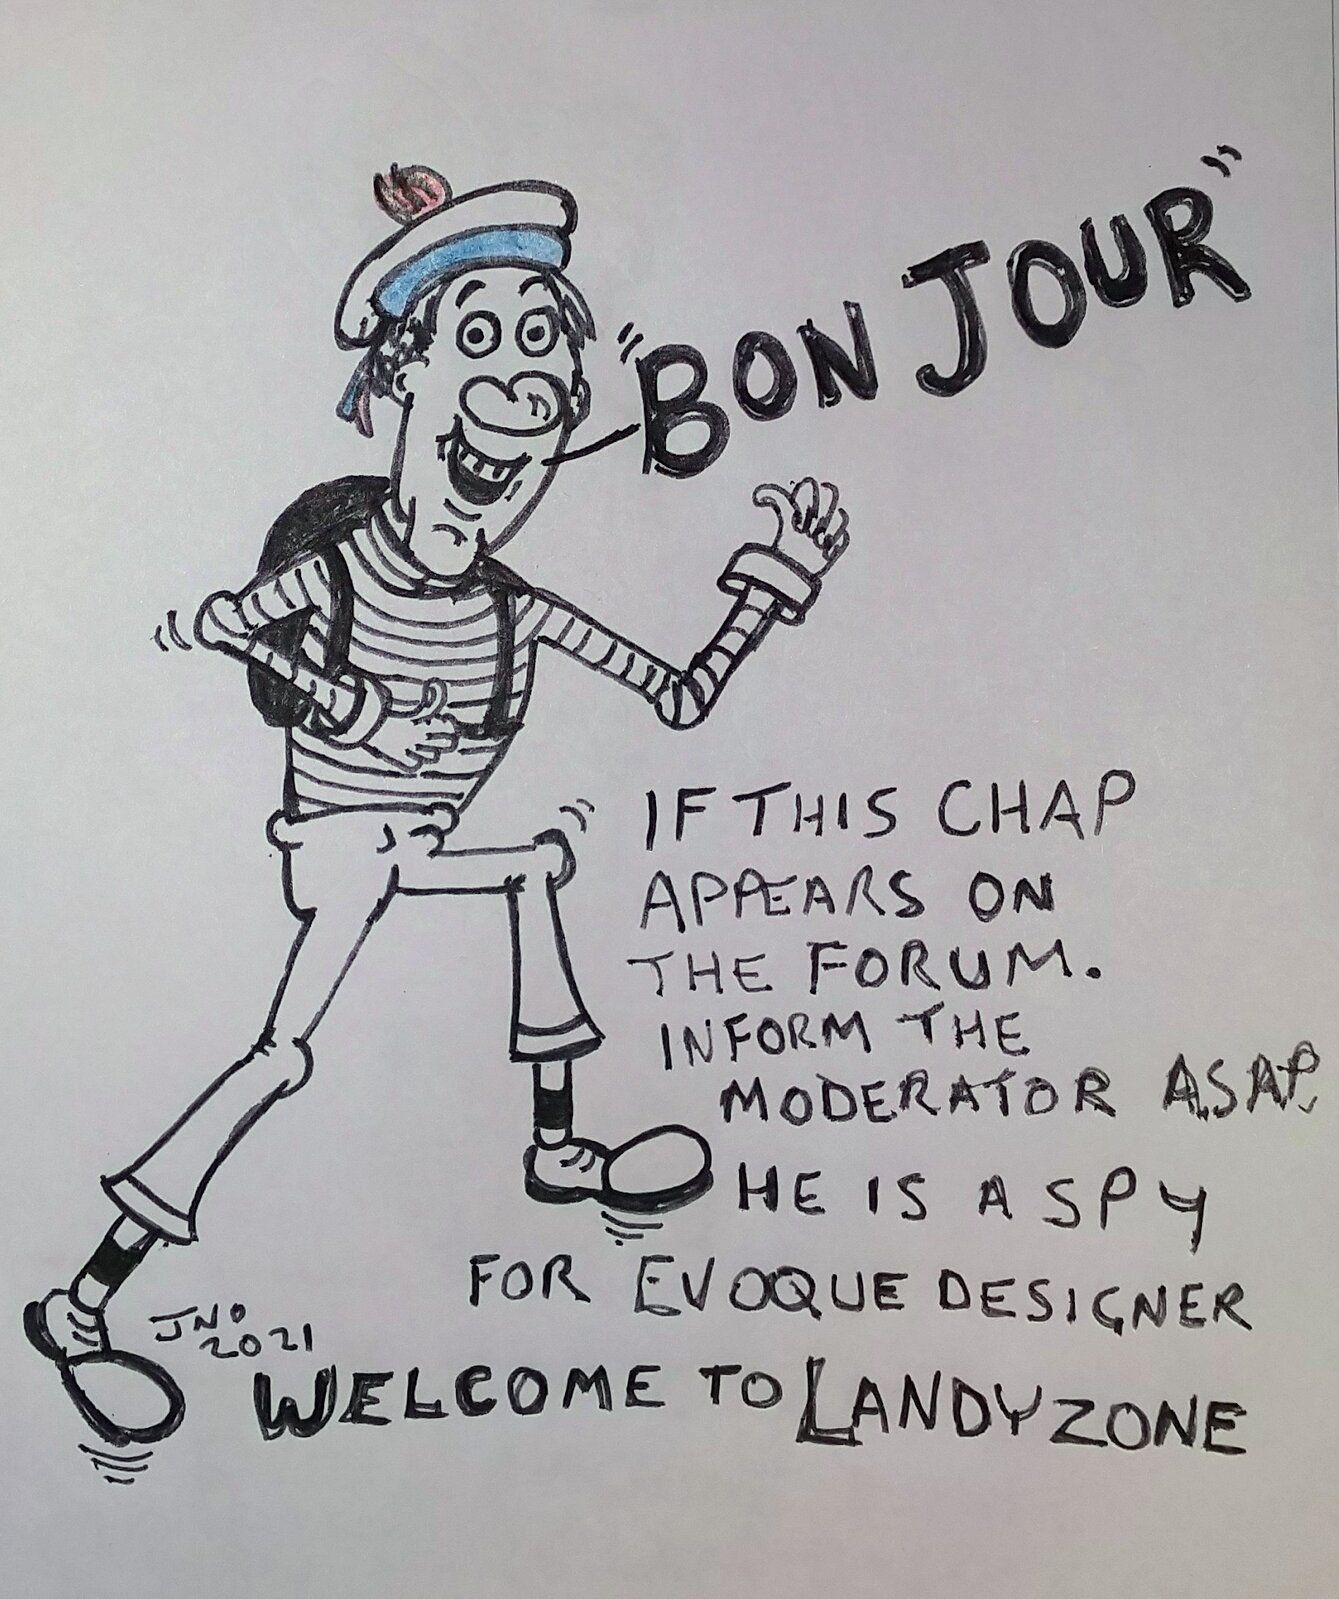 "BON JOUR"
IF THIS CHAP
APPEARS ON
THE FORUM.
INFORM THE
MODERATOR ASAP.
HE IS A SPY
FOR EVOQUE DESIGNER
JNO
2021
WELCOME TO LANDYZONE